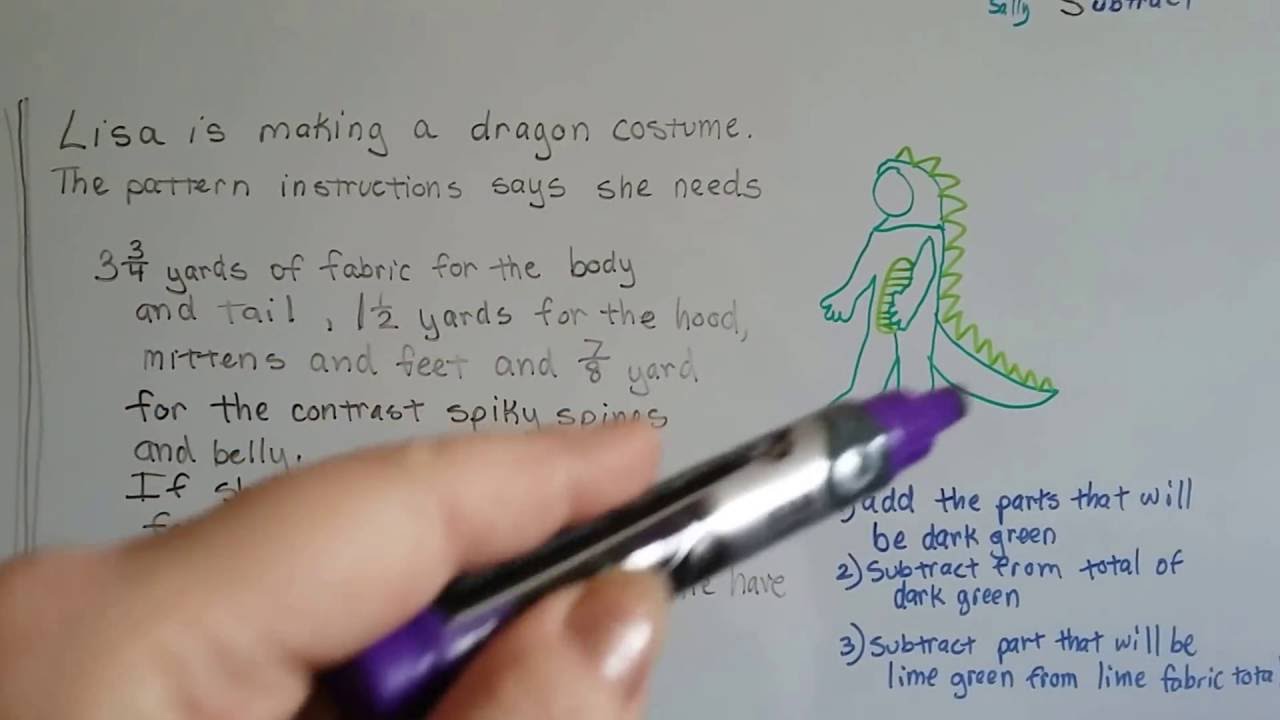 Sally Subtract
Lisa is making a dragon costume.
The pattern instructions says she needs
3 3/4 yards of fabric for the body
and tail, 1 1/2 yards for the hood,
mittens and feet and 7/8 yard
for the contrast spiky spines
and belly.
If
have
add the parts that will
be dark green
2) Subtract from total of
dark green
3) Subtract part that will be
lime green from lime fabric tota